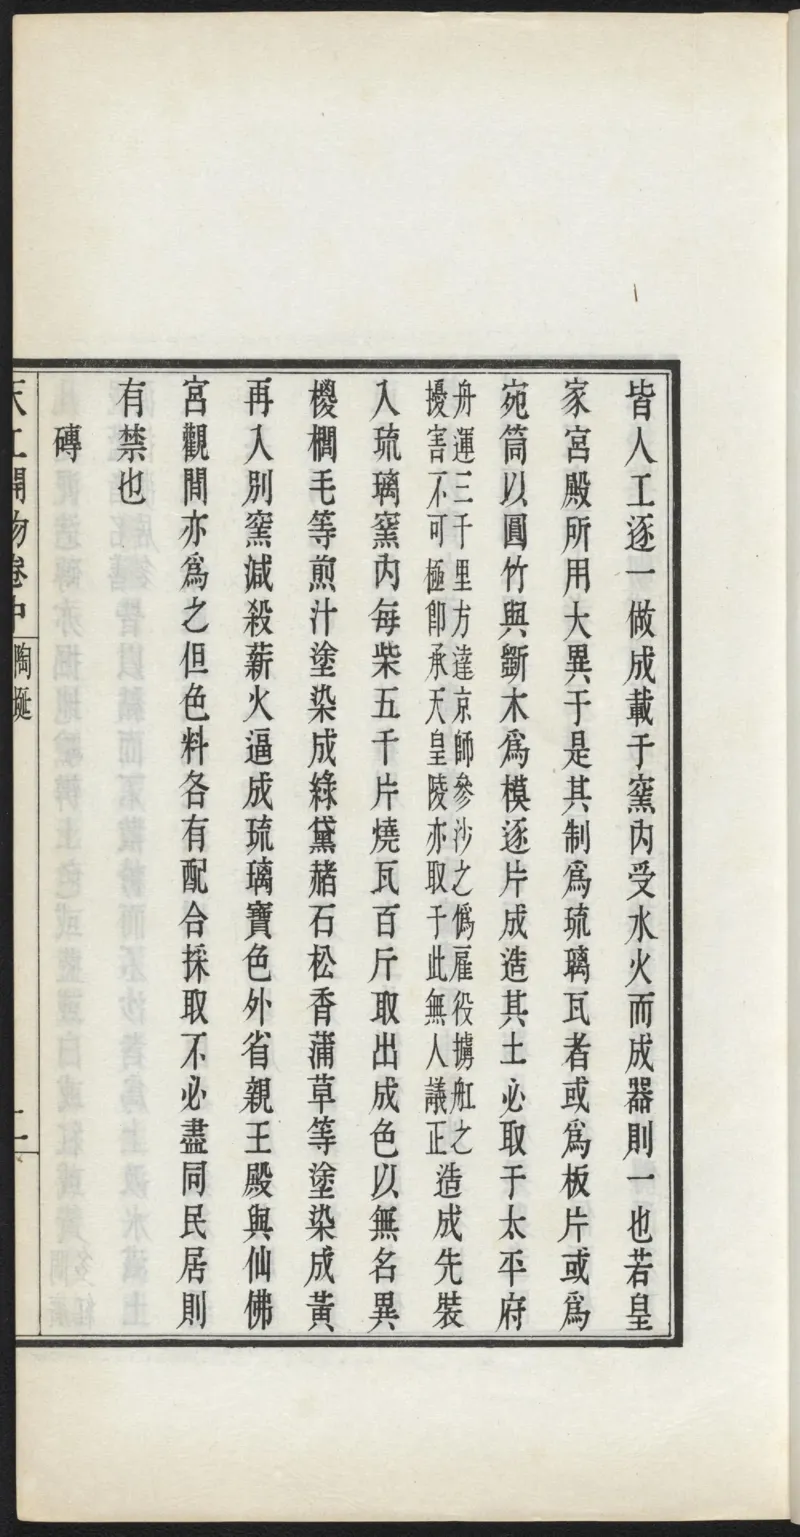 皆人工逐一做成載于窯內受水火而成器則一也若皇
家宮殿所用大異于是其制爲琉璃瓦者或爲板片或爲
宛筒以圓竹與斵木爲模逐片成造其土必取于太平府
舟運三千里方達京師參沙之僞雇役擄舡之
擾害不可極卽承天皇陵亦取于此無人議正
造成先裝
入琉璃窯內每柴五千片燒瓦百斤取出成色以無名異
椶櫚毛等煎汁塗染成綠黛赭石松香蒲草等塗染成黃
再入別窯減殺薪火逼成琉璃寶色外省親王殿與仙佛
宮觀間亦爲之但色料各有配合採取不必盡同民居則
有禁也
磚
天工開物卷中
陶埏
二